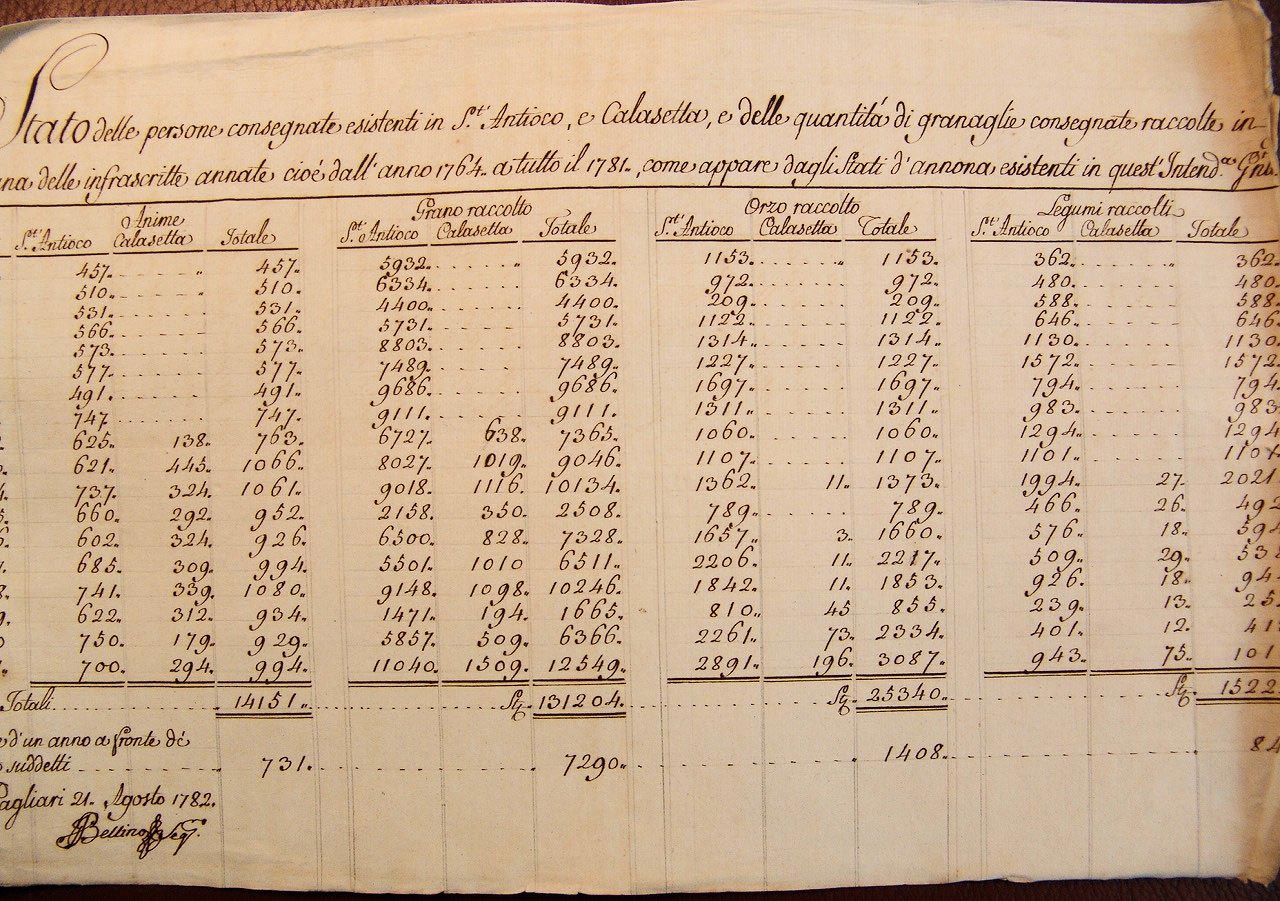 Stato delle persone consegnate esistenti in S.t' Antioco, e Calasetta, e delle quantitá di granaglie consegnate raccolte in-
na delle infrascritte annate cioé dall' anno 1764. a tutto il 1781., come appare dagli Stati d' annona esistenti in quest' Intend.a Gñle
Anime Grano raccolto Orzo raccolto Legumi raccolti
S.t' Antioco Calasetta Totale S.t' Antioco Calasetta Totale S.t' Antioco Calasetta Totale S.t' Antioco Calasetta Totale
457. " 457. 5932. " 5932. 1153. " 1153. 362. " 362.
510. " 510. 6334. 6334. 972. 972. 480. 480.
531. 531. 4400. 4400. 209. 209. 588. 588.
566. 566. 5731. 5731. 1122. 1122. 646. 646.
573. 573. 8803. 8803. 1314. 1314. 1130. 1130.
577. 577. 7489. 7489. 1227. 1227. 1572. 1572.
491. 491. 9686. 9686. 1697. 1697. 794. 794.
747. 747. 9111. 9111. 1311. 1311. 983. 983.
625. 138. 763. 6727. 638. 7365. 1060. 1060. 1294. 1294
621. 445. 1066. 8027. 1019. 9046. 1107. 1107. 1101. 1101
4. 737. 324. 1061. 9018. 1116. 10134. 1362. 11. 1373. 1994. 27. 2021
5. 660. 292. 952. 2158. 350. 2508. 789. 789. 466. 26. 492
6. 602. 324. 926. 6500. 828. 7328. 1657. 3. 1660. 576. 18. 594
685. 309. 994. 5501. 1010 6511. 2206. 11. 2217. 509. 29. 538
8. 741. 339. 1080. 9148. 1098. 10246. 1842. 11. 1853. 926. 18. 94
9. 622. 312. 934. 1471. 194. 1665. 810. 45 855. 239. 13. 25
0 750. 179. 929. 5857. 509. 6366. 2261. 73. 2334. 401. 12. 41
700. 294. 994. 11040. 1509. 12549. 2891. 196. 3087. 943. 75. 101
Totali 14151. 131204. 25340. 1522
e d'un anno a fronte dé
suddetti 731. 7290. 1408. 84
Cagliari 21. Agosto 1782.
Bellino Seg.